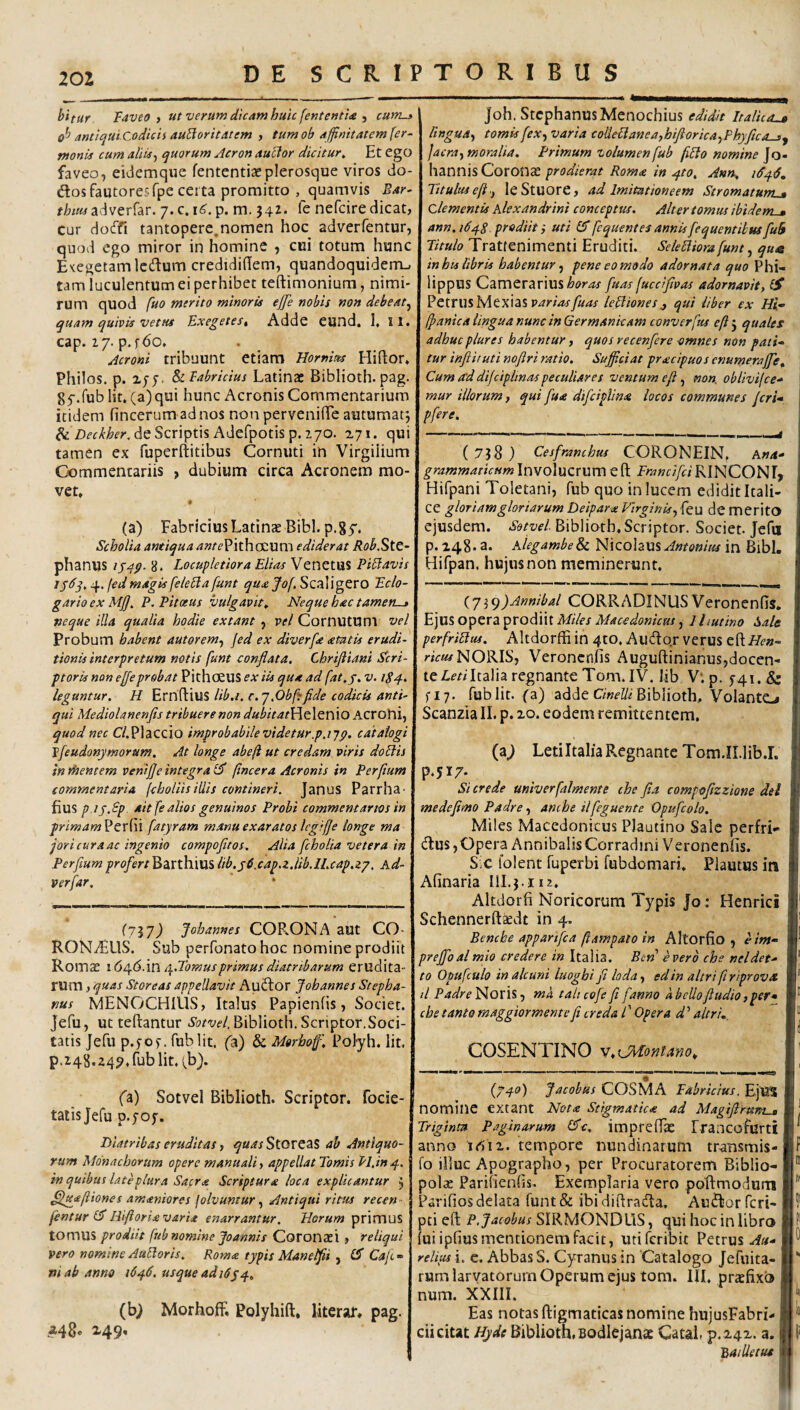 202
DE SCRIPTORIBUS
bitur. Faveo, ut verum dicam huic sententiæ, cum
ob antiqui Codicis auctoritatem, tum ob affinitatem ser-
monis cum aliis, quorum Acron auctor dicitur. Et ego
faveo, eidemque sententiæ plerosque viros do-
ctos fautores spe certa promitto, quamvis Bar-
thius adversar. 7. c. 16. p. m. 342. se nescire dicat,
cur docti tantopere nomen hoc adversentur,
quod ego miror in homine, cui totum hunc
Exegetam lectum credidissem, quandoquidem
tam luculentum ei perhibet testimonium, nimi-
rum quod suo merito minoris esse nobis non debeat,
quam quivis vetus Exegetes. Adde eund. l. 11.
cap. 27. p. 560.
Acroni tribuunt etiam Hornius Histor.
Philos. p. 255. & Fabricius Latinæ Biblioth. pag.
85. sub lit. (a) qui hunc Acronis Commentarium
itidem sincerum ad nos non pervenisse autumat;
& Deckher. de Scriptis Adespotis p. 270. 271. qui
tamen ex superstitibus Cornuti in Virgilium
Commentariis, dubium circa Acronem mo-
vet.
(a) Fabricius Latinæ Bibl. p. 85.
Scholia antiqua ante Pithœum ediderat Rob. Ste-
phanus 1549. 8. Locupletiora Elias Venetus Pictavis
1563. 4. sed magis selecta sunt quæ Jos. Scaligero Eclo-
gario ex MSS. P. Pitœus vulgavit. Neque hæc tamen
neque illa qualia hodie extant, vel Cornutum vel
Probum habent autorem, sed ex diversæ ætatis erudi-
tionis interpretum notis sunt conflata. Christiani Scri-
ptoris non esse probat Pithœus ex iis quæ ad sat. 5. v. 184.
leguntur. H Ernstius lib. 1. c. 7. Obs. fide codicis anti-
qui Mediolanensis tribuere non dubitat Helenio Acroni,
quod nec Cl. Placcio improbabile videtur. p. 179. catalogi
Pseudonymorum. At longe abest ut credam viris doctis
in mentem venisse integra & sincera Acronis in Persium
commentaria scholiis illis contineri. Janus Parrha-
sius p 15. Ep ait se alios genuinos Probi commentarios in
primam Persii satyram manu exaratos legisse longe ma
jori cura ac ingenio compositos. Alia scholia vetera in
Persium profert Barthius lib. 56. cap. 2. lib. II. cap. 27. Ad-
versar.
(737) Johannes CORONA aut CO-
RONÆUS. Sub personato hoc nomine prodiit
Romæ 1646. in 4. Tomus primus diatribarum erudita-
rum, quas Storeas appellavit Auctor Johannes Stepha-
nus MENOCHIUS, Italus Papiensis, Societ.
Jesu, ut testantur Sotvel. Biblioth. Scriptor. Soci-
tatis Jesu p. 505. sub lit. (a) & Morhoff. Polyh. lit.
p. 248. 249. sub lit. (b).
(a) Sotvel Biblioth. Scriptor. socie-
tatis Jesu p. 505.
Diatribas eruditas, quas Storeas ab Antiquo-
rum Monachorum opere manuali, appellat Tomis VI. in 4.
in quibus late plura Sacræ Scripturæ loca explicantur;
Quæstiones amæniores solvuntur, Antiqui ritus recen-
sentur & Historiæ variæ enarrantur. Horum primus
tomus prodiit sub nomine Joannis Coronæi, reliqui
vero nomine Auctoris. Romæ typis Manelfii, & Cassi-
ni ab anno 1646. usque ad 1654.
(b) Morhoff. Polyhist. literar. pag.
248. 249.
Joh. Stephanus Menochius edidit Italica
lingua, tomis sex, varia collectanea, historica, Physica,
sacra, moralia. Primum volumen sub ficto nomine Jo-
hannis Coronæ prodierat Romæ in 4to. Ann. 1646.
Titulus est, le Stuore, ad Imitationeem Stromatum
Clementis Alexandrini conceptus. Alter tomus ibidem
ann. 1648 prodiit; uti & sequentes annis sequentibus sub
Titulo Trattenimenti Eruditi. Selectiora sunt, quæ
in his libris habentur, pene eo modo adornata quo Phi-
lippus Camerarius horas suas succisivas adornavit, &
Petrus Mexias varias suas lectiones, qui liber ex Hi-
spanica lingua nunc in Germanicam conversus est; quales
adhuc plures habentur, quos recensere omnes non pati-
tur instituti nostri ratio. Sufficiat præcipuos enumerasse.
Cum ad disciplinas peculiares ventum est, non oblivisce-
mur illorum, qui suæ disciplinæ locos communes scri-
psere.
(738) Cesfranchus CORONEIN, Ana-
grammaticum Involucrum est Francisci RINCONI,
Hispani Toletani, sub quo in lucem edidit Itali-
ce gloriam gloriarum Deiparæ Virginis, seu de merito
ejusdem. Sotvel. Biblioth. Scriptor. Societ. Jesu
p. 248. a. Alegambe & Nicolaus Antonius in Bibl.
Hispan. hujus non meminerunt.
(739) Annibal CORRADINUS Veronensis.
Ejus opera prodiit Miles Macedonicus, Plautino Sale
perfrictus. Altdorffi in 4to. Auctor verus est Hen-
ricus NORIS, Veronensis Augustinianus, docen-
te Leti Italia regnante Tom. IV. lib V. p. 541. &
517. sub lit. (a) adde Cinelli Biblioth. Volante
Scanzia II. p. 20. eodem remittentem.
(a) Leti Italia Regnante Tom. II. lib. I.
p. 517.
Si crede universalmente che sia compositione del
medesimo Padre, anche il seguente Opuscolo.
Miles Macedonicus Plautino Sale perfri-
ctus, Opera Annibalis Corradini Veronensis.
Sic solent superbi subdomari. Plautus in
Asinaria III. 3. 112.
Altdorfi Noricorum Typis Jo: Henrici
Schennerstædt in 4.
Benche apparisca stampato in Altorfio, è im-
presso al mio credere in Italia. Ben' è verò che nel det-
to Opusculo in alcuni luoghi si loda, ed in altri si riprova
il Padre Noris, mà tali cose si fanno à bello studio, per-
che tanto maggiormente si creda l' Opera d' altri.
COSENTINO v. Montano.
(740) Jacobus COSMA Fabricius. Ejus
nomine extant Notæ Stigmaticæ ad Magistrum
Triginta Paginarum &c. impressæ Francofurti
anno 1612. tempore nundinarum transmis-
so illuc Apographo, per Procuratorem Biblio-
polæ Parisiensis. Exemplaria vero postmodum
Parisios delata sunt & ibi distracta. Auctor scri-
pti est P. Jacobus SIRMONDUS, qui hoc in libro
sui ipsius mentionem facit, uti scribit Petrus Au-
relius i. e. Abbas S. Cyranus in Catalogo Jesuita-
rum larvatorum Operum ejus tom. III. præfixo
num. XXIII.
Eas notas stigmaticas nomine hujus Fabri-
cii citat Hyde Biblioth. Bodlejanæ Catal. p. 242. a.
Bailletus